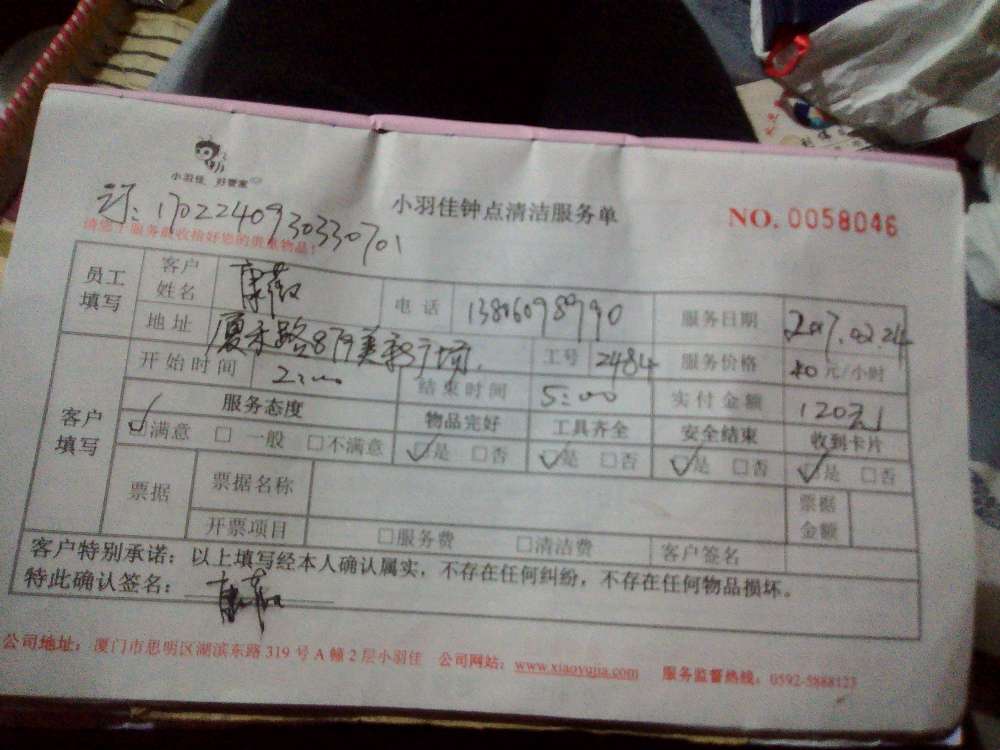 小羽佳 好管家
小羽佳钟点清洁服务单
NO. 0058046
订:1702240930330701
请您于服务前收拾好您的贵重物品!
员工填写 客户姓名 康薇 电话 13806098790 服务日期 2017.02.24
地址 厦禾路879美新广场 工号 2484 服务价格 40元/小时
客户填写 开始时间 2:00 结束时间 5:00 实付金额 120元
服务态度 物品完好 工具齐全 安全结束 收到卡片
☑满意 □一般 □不满意 ☑是 □否 ☑是 □否 ☑是 □否 ☑是 □否
票据 票据名称 票据金额
开票项目 □服务费 □清洁费 客户签名
客户特别承诺:以上填写经本人确认属实,不存在任何纠纷,不存在任何物品损坏。
特此确认签名:康薇
公司地址:厦门市思明区湖滨东路 319 号 A 幢 2 层小羽佳 公司网站:www.xiaoyujia.com 服务监督热线:0592-5888123